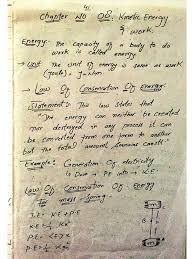 Chapter No 08. Kinetic Energy
& work.
Energy: The capacity of a body to do
work is called energy
→ Unit The unit of energy is same as work
(joule) = J = Nm
Law Of Conservation Of Energy:
Statement: This law states that
"The energy can neither be created
nor destroyed in any process it can
be converted from one form to another
but the total amount remains const"
Example: Generation Of electricity
Dam → PE into → K.E
Law Of Conservation Of Energy
for mass spring:
T.E = KE + PE